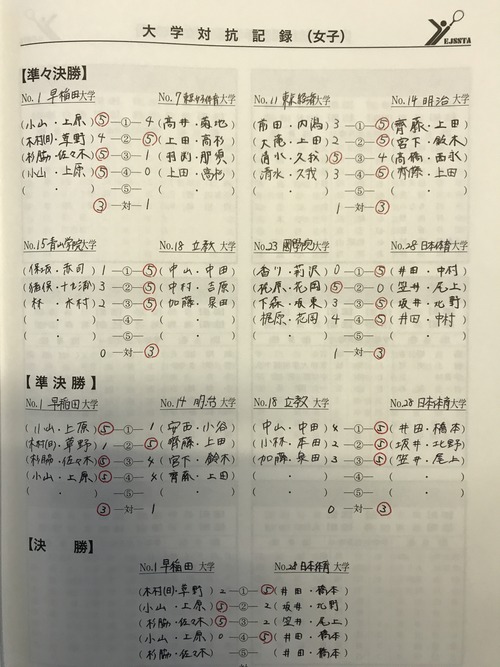 大学対抗記録（女子）
EJSSTA
【準々決勝】
No.1 早稲田大学 No.7 東京女子体育大学
(小山・上原) ⑤ ―①― 4 (高井・菊地)
(木村(日)・草野) 4 ―②― ⑤ (上田・高杉)
(杉脇・佐々木) ⑤ ―③― 1 (羽鳥・那須)
(小山・上原) ⑤ ―④― 0 (上田・高杉)
( ・ ) ―⑤― ( ・ )
③ ―対― 1
No.11 東京経済大学 No.14 明治大学
(前田・内潟) 3 ―①― ⑤ (齊藤・上田)
(大滝・上田) 2 ―②― ⑤ (宮下・鈴木)
(清水・久我) ⑤ ―③― 4 (高橋・西永)
(清水・久我) 3 ―④― ⑤ (齊藤・上田)
( ・ ) ―⑤― ( ・ )
1 ―対― ③
No.15 青山学院大学 No.18 立教大学
(保坂・赤司) 1 ―①― ⑤ (中山・中田)
3 ―②― ⑤ (中村・吉原)
(林・木村) 2 ―③― ⑤ (加藤・泉田)
( ・ ) ―④― ( ・ )
( ・ ) ―⑤― ( ・ )
0 ―対― ③
No.23 國學院大學 No.28 日本体育大学
(香川・莉沢) 0 ―①― ⑤ (井田・中村)
(梶原・花岡) ⑤ ―②― 0 (笠井・尾上)
(下森・坂東) 3 ―③― ⑤ (坂井・北野)
(梶原・花岡) 4 ―④― ⑤ (井田・中村)
( ・ ) ―⑤― ( ・ )
1 ―対― ③
【準決勝】
No.1 早稲田大学 No.14 明治大学
(小山・上原) ⑤ ―①― 1 (安西・小谷)
(木村(日)・草野) 1 ―②― ⑤ (齊藤・上田)
(杉脇・佐々木) ⑤ ―③― 4 (宮下・鈴木)
(小山・上原) ⑤ ―④― 4 (齊藤・上田)
( ・ ) ―⑤― ( ・ )
③ ―対― 1
No.18 立教大学 No.28 日本体育大学
(中山・中田) 4 ―①― ⑤ (井田・橋本)
(小林・本田) 2 ―②― ⑤ (坂井・北野)
(加藤・泉田) 3 ―③― ⑤ (笠井・尾上)
( ・ ) ―④― ( ・ )
( ・ ) ―⑤― ( ・ )
0 ―対― ③
【決　勝】
No.1 早稲田大学 No.28 日本体育大学
(木村(日)・草野) 2 ―①― ⑤ (井田・橋本)
(小山・上原) ⑤ ―②― 2 (坂井・北野)
(杉脇・佐々木) ⑤ ―③― 2 (笠井・尾上)
(小山・上原) 0 ―④― ⑤ (井田・橋本)
(杉脇・佐々木) ―⑤― (井田・橋本)